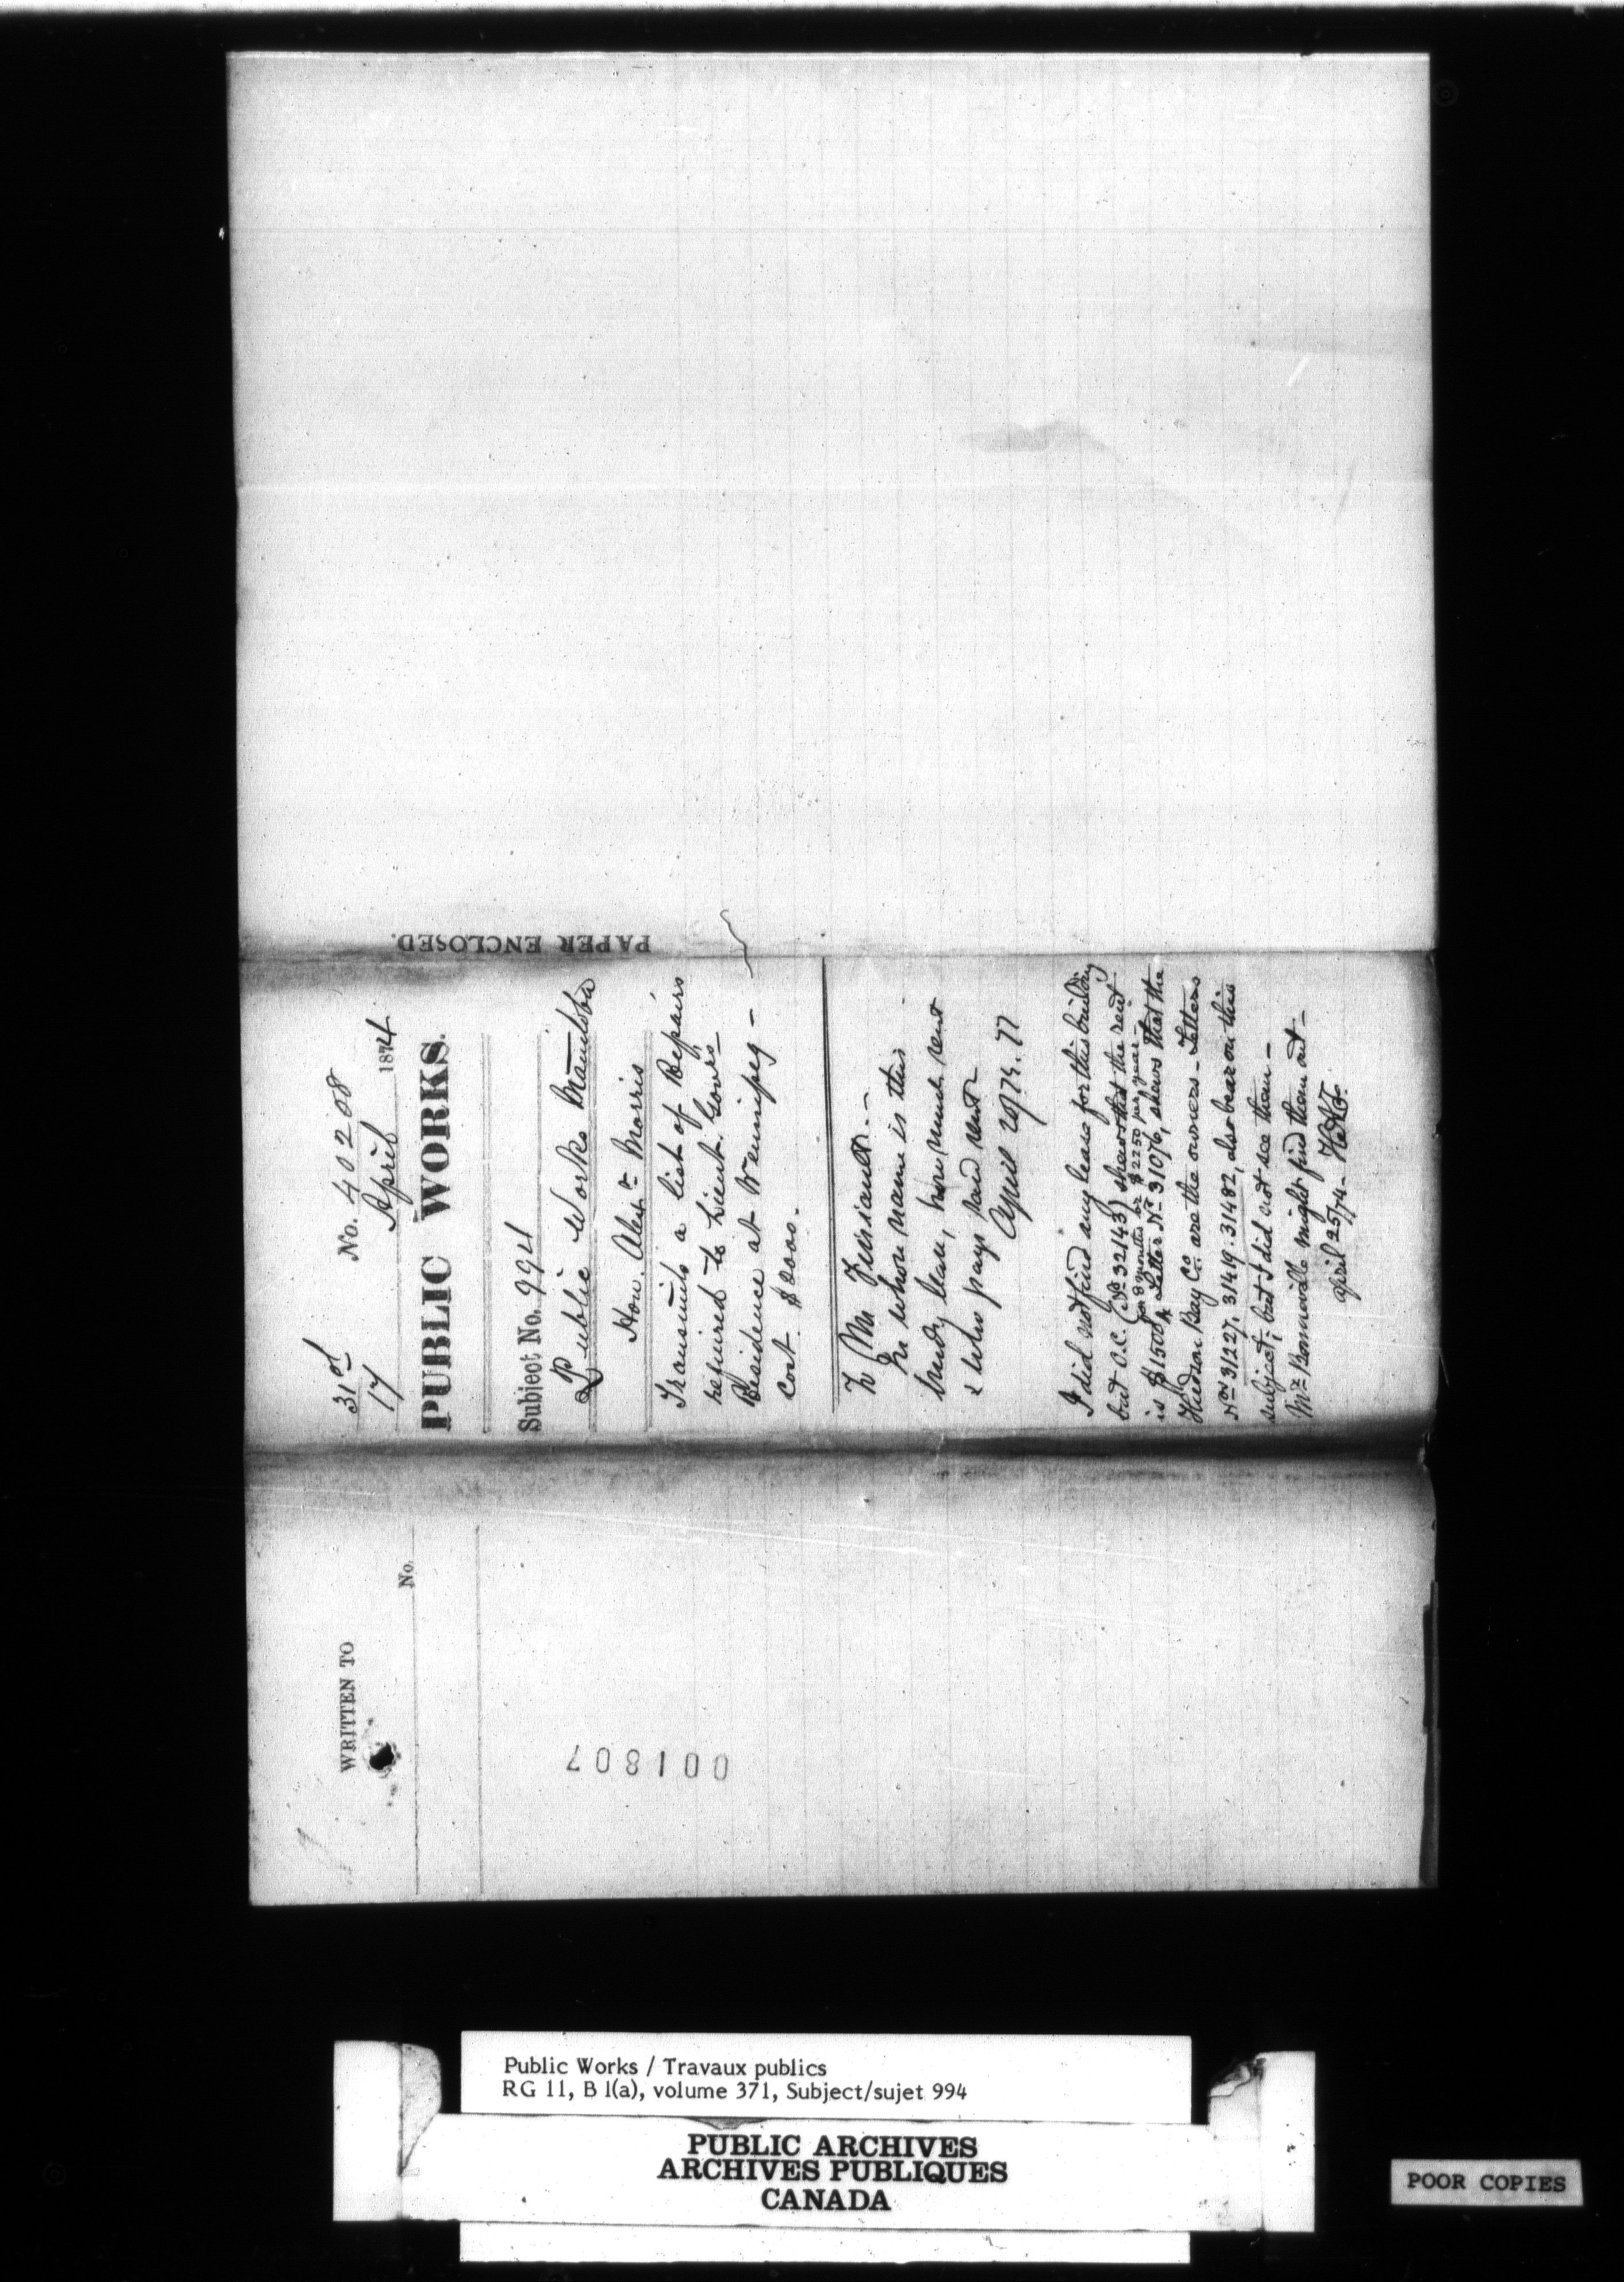 PAPER ENCLOSED.
31st No. 40208
17 April 1874
PUBLIC WORKS.
Subject No. 994
Public Works Manitoba
Hon. Alexr Morris
Transmits a list of Repairs
required to Lieut. Govrs
Residence at Winnipeg —
Cost. $2000.
To Mr
In whose name is this
lease, how much rent
& who pays said rent
April
I did not find any lease for this building
but O.C. (No 32143) shews that the rent
for 8 months or $2250 per year —
is $1500 & Letter No 31076, shews that the
Hudson Bay Co. are the owners — Letters
Nos 31227, 31419. 31482, also bear on this
subject; but I did not see them —
Mr Bonneville might find them out —
april 25/74 —
WRITTEN TO
No.
001807
Public Works / Travaux publics
RG 11, B 1(a), volume 371, Subject/sujet 994
PUBLIC ARCHIVES
ARCHIVES PUBLIQUES
CANADA
POOR COPIES